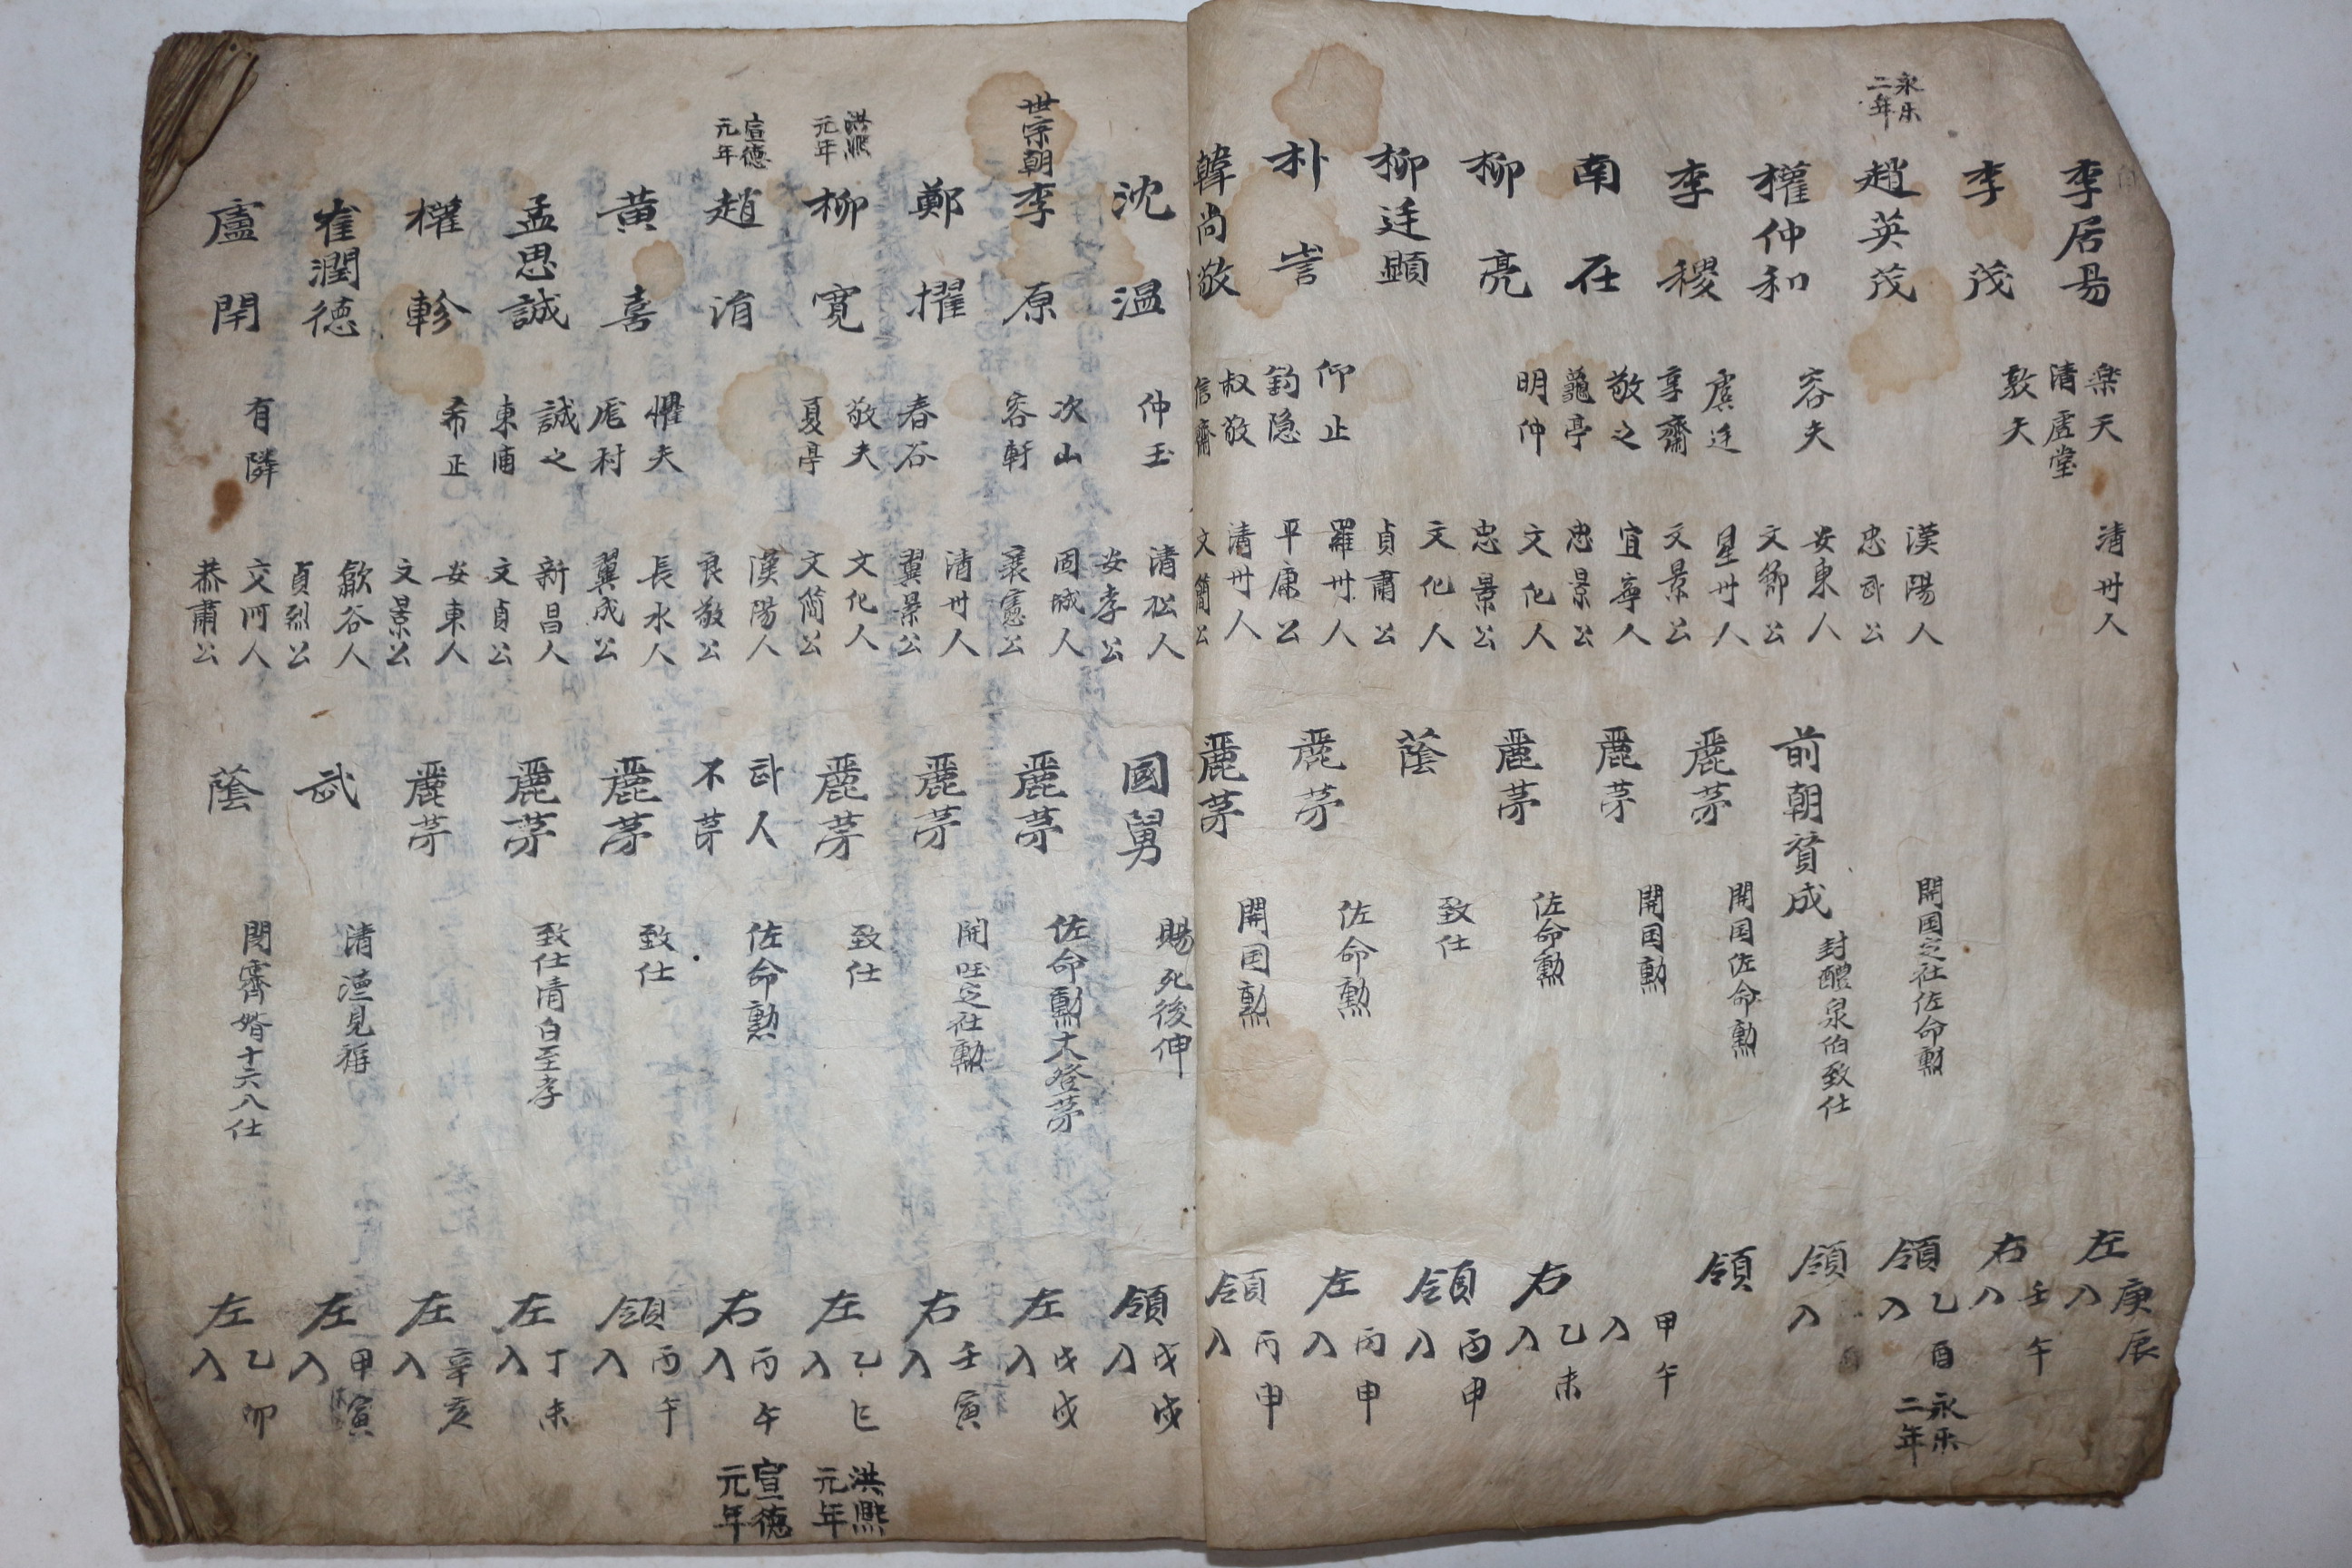 李居昜
楽天
清虛堂
清州人
左入
庚辰
李茂
敦夫
右入
壬午
永乐
二年
趙英茂
漢陽人
忠武公
開国定社佐命勲
領入
乙酉
永乐
二年
權仲和
容夫
安東人
文節公
前朝貳成
封醴泉伯致仕
領入
李稷
虞廷
亨齋
星州人
文景公
麗苐
開国佐命勲
領
南在
敬之
龜亭
宜寧人
忠景公
麗苐
開国勲
入
甲午
柳亮
明仲
文化人
忠景公
麗苐
佐命勲
右入
乙未
柳廷顯
文化人
貞肅公
蔭
致仕
領入
丙申
朴訔
仰止
釣隐
羅州人
平度公
麗苐
佐命勲
左入
丙申
韓尚敬
叔敬
信齋
清州人
文簡公
麗苐
開国勲
領入
丙申
沈温
仲玉
清松人
安孝公
國舅
賜死後伸
領入
戊戌
世宗朝
李原
次山
容軒
固城人
襄憲公
麗苐
佐命勲大登苐
左入
戊戌
鄭擢
春谷
清州人
翼景公
麗苐
開国定社勲
右入
壬寅
洪熙
元年
柳寬
敬夫
夏亭
文化人
文簡公
麗苐
致仕
左入
乙巳
洪熙
元年
宣德
元年
趙涓
漢陽人
良敬公
武人
不苐
佐命勲
右入
丙午
宣德
元年
黃喜
懼夫
厖村
長水人
翼成公
麗苐
致仕
領入
丙午
孟思誠
誠之
東浦
新昌人
文貞公
麗苐
致仕清白至孝
左入
丁未
權軫
希正
安東人
文景公
麗苐
左入
辛亥
崔潤德
歙谷人
貞烈公
武
清德見稱
左入
甲寅
盧閈
有隣
交河人
恭肅公
蔭
閔霽婿十六入仕
左入
乙卯